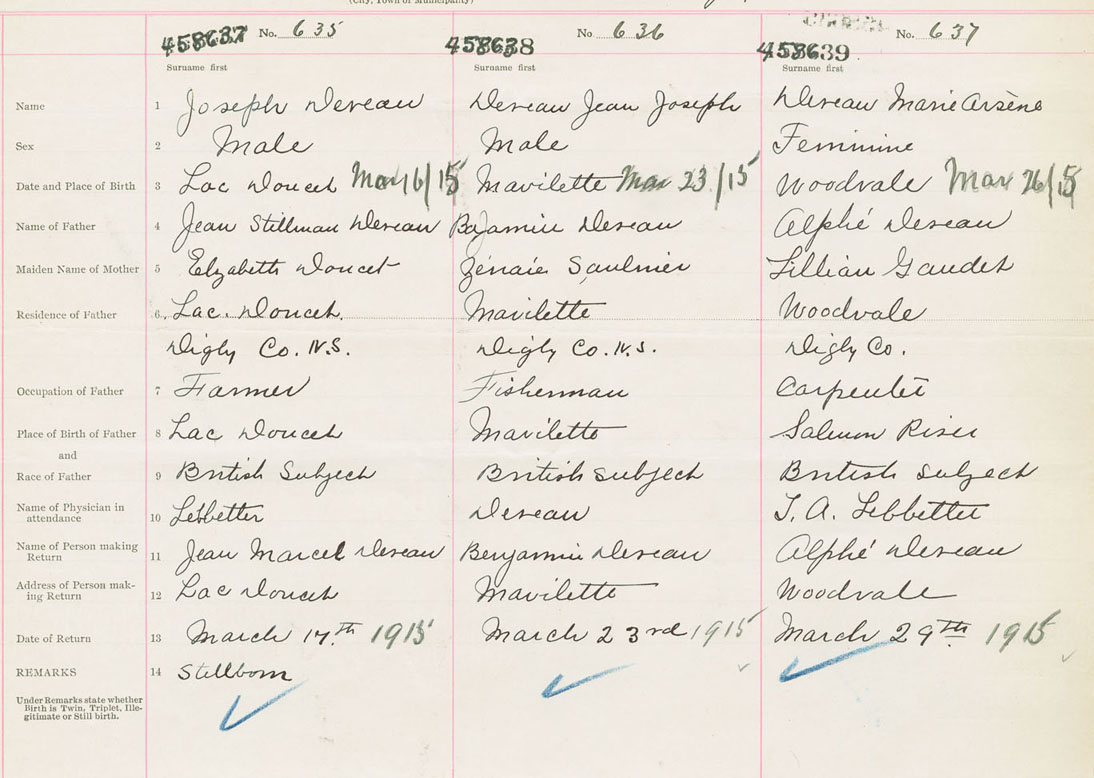 (City, Town or Municipality)
458637 No. 635 458638 No 636 458639 No. 637
Surname first Surname first Surname first
Name 1 Joseph Deveau Deveau Jean Joseph Deveau Marie Arsène
Sex 2 Male Male Feminine
Date and Place of Birth 3 Lac Doucet Mar 16/15 Mavilette Mar 23/15 Woodvale Mar 26/15
Name of Father 4 Jean Stillman Deveau Bajamin Deveau Alphé Deveau
Maiden Name of Mother 5 Elyzabeth Doucet Zénaie Saulnier Lillian Gaudet
Residence of Father 6 Lac. Doucet. Mavilette Woodvale
Digby Co. N.S. Digby Co. N.S. Digby Co.
Occupation of Father 7 Farmer Fisherman Carpenter
Place of Birth of Father 8 Lac Doucet Mavilette Salmon River
and
Race of Father 9 British Subject British subject British subject
Name of Physician in
attendance 10 Lebbetter Deveau T. A. Lebbetter
Name of Person making
Return 11 Jean Marcel Deveau Benjamin Deveau Alphé Deveau
Address of Person mak-
ing Return 12 Lac Doucet Mavilette Woodvale
Date of Return 13 March 17th 1915 March 23rd 1915 March 29th 1915
REMARKS 14 Stillborn
Under Remarks state whether
Birth is Twin, Triplet, Ille-
gitimate or Still birth.